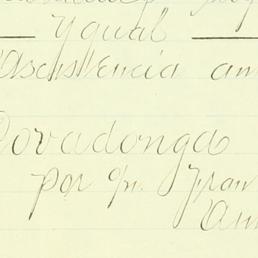 Ygual
Asistencia am
Covadonga
por Gn. Fran